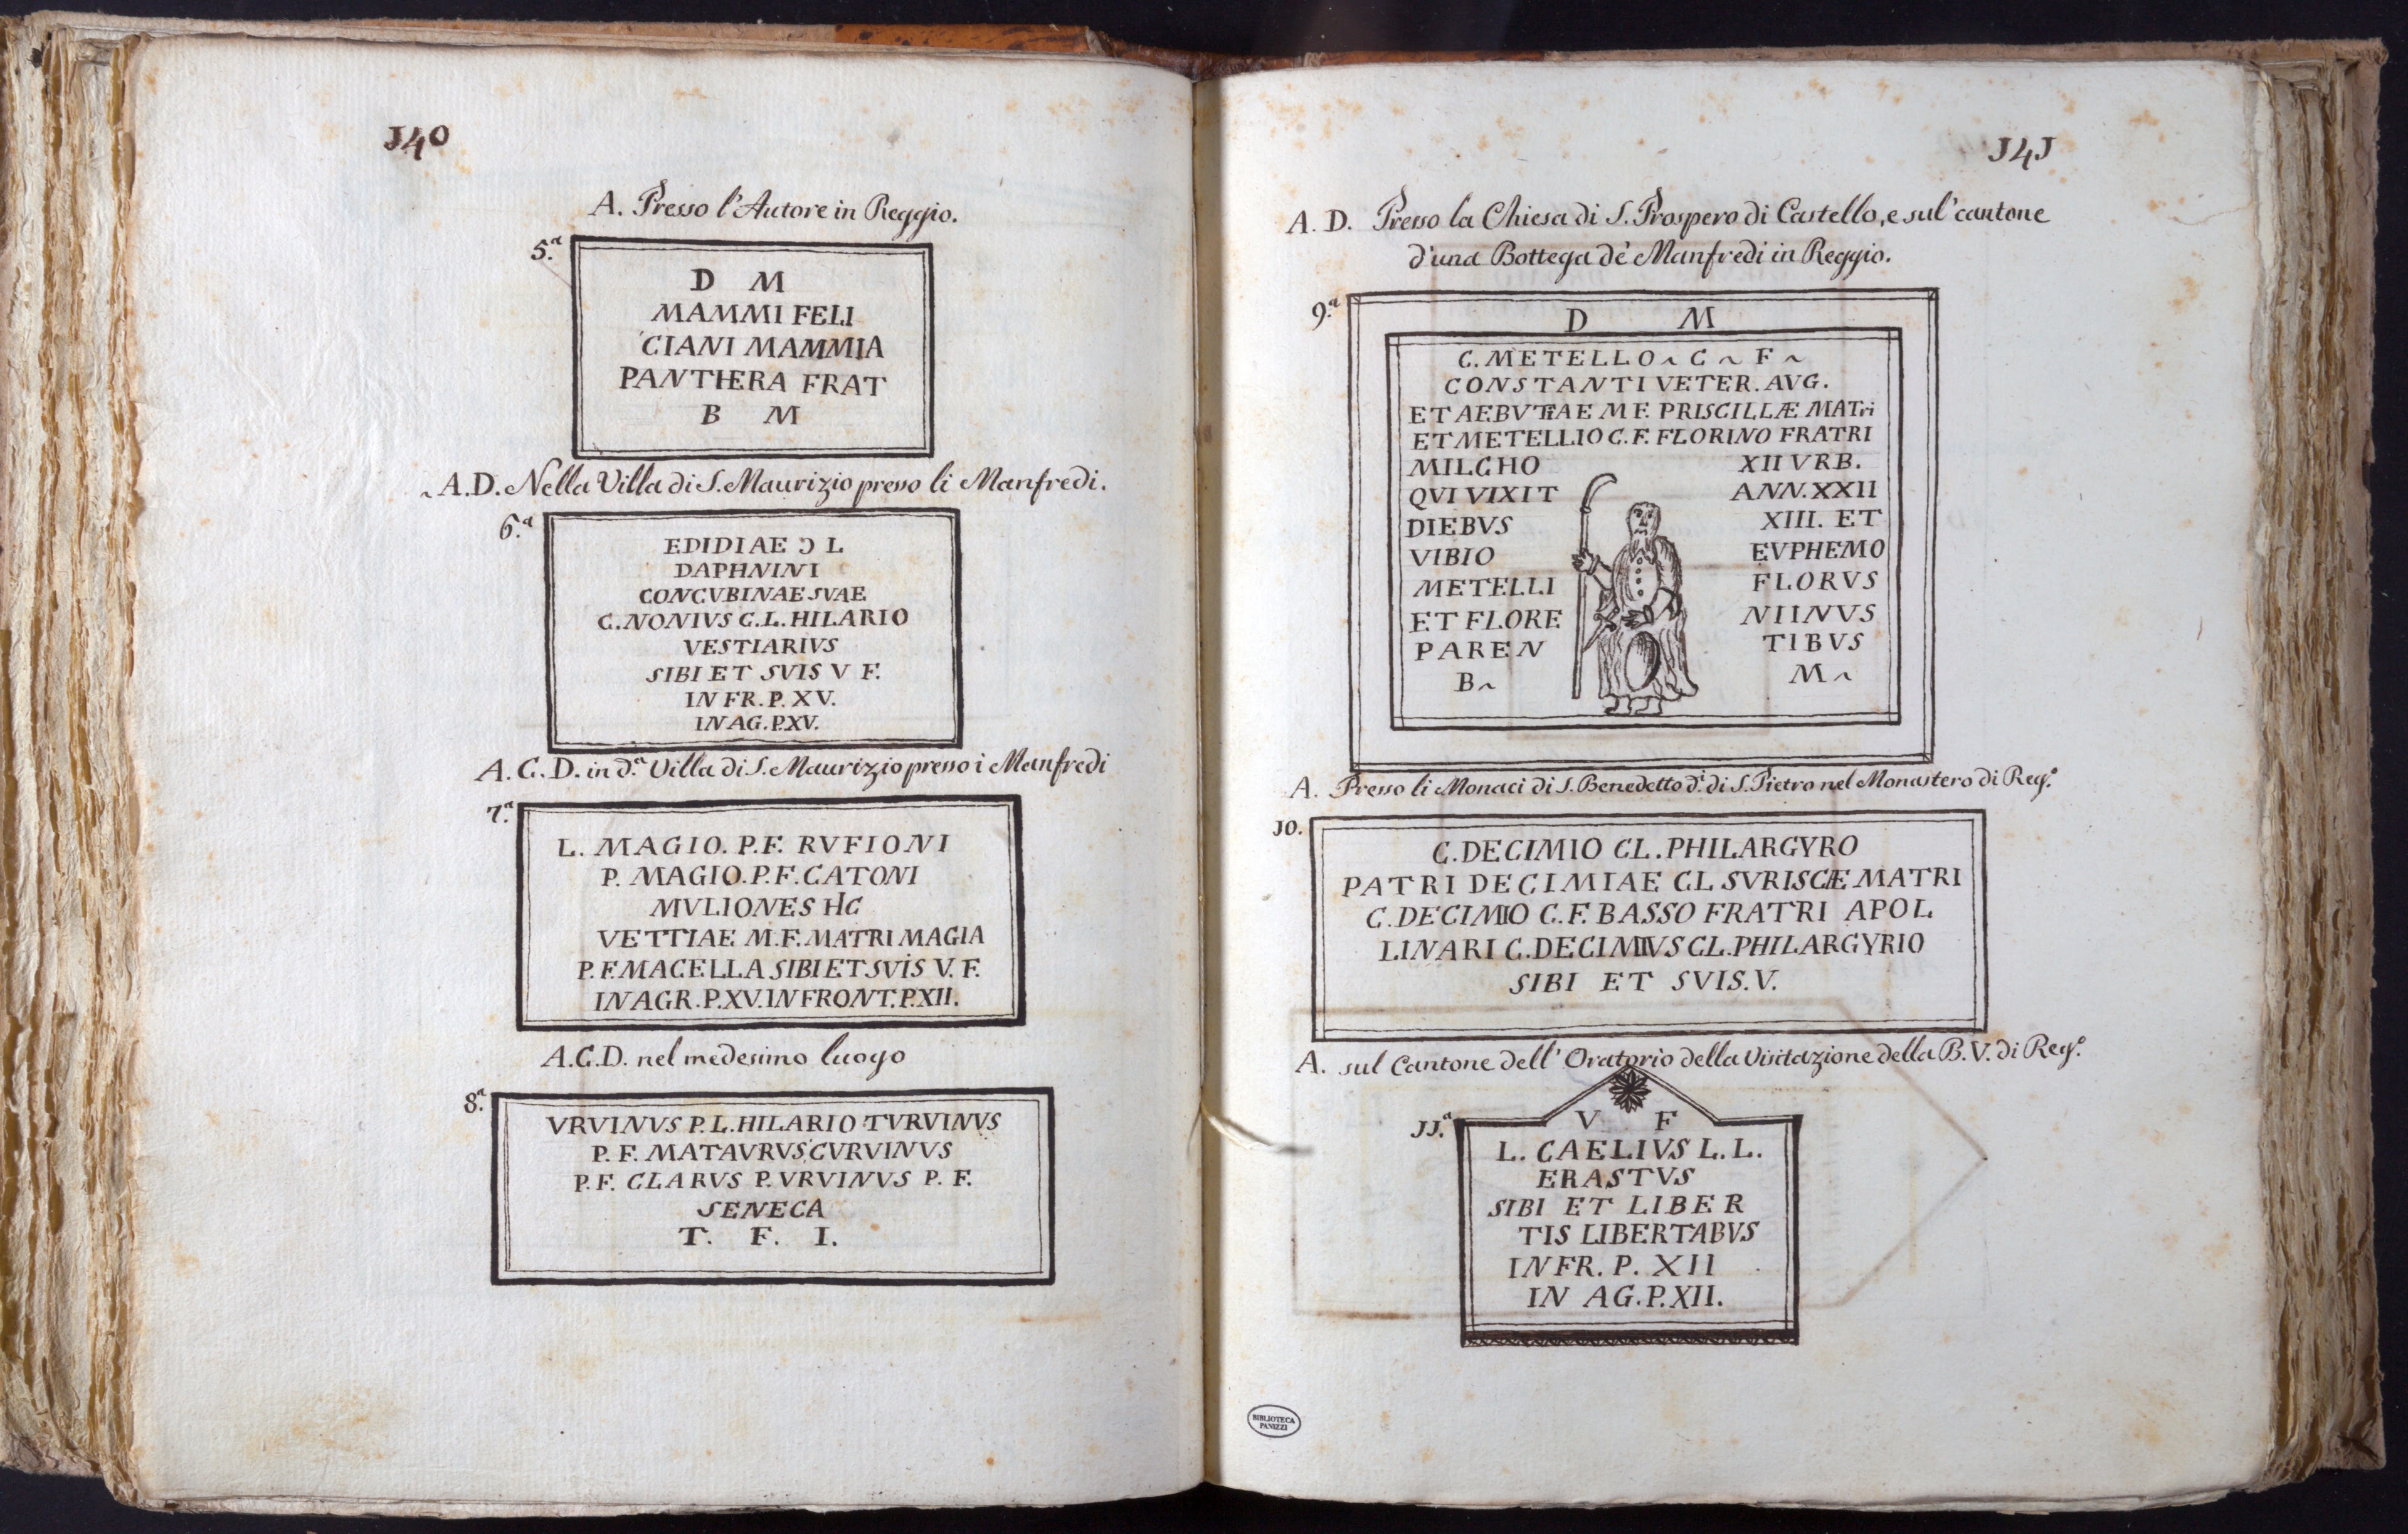 140
A. Presso l'Autore in Reggio.
5.a
D M
MAMMI FELI
CIANI MAMMIA
PANTHERA FRAT
B M
A.D. Nella Villa di S. Maurizio presso li Manfredi.
6.a
EDIDIAE Ɔ L
DAPHNINI
CONCVBINAE SVAE
C. NONIVS C. L. HILARIO
VESTIARIVS
SIBI ET SVIS V F.
IN FR. P. XV.
IN AG. P.XV.
A.C.D. in d.a Villa di S. Maurizio presso i Manfredi
7.a
L. MAGIO. P.F. RVFIONI
P. MAGIO. P.F. CATONI
MVLIONES HC
VETTIAE M.F. MATRI MAGIA
P.F. MACELLA SIBI ET SVIS V. F.
IN AGR. P.XV. IN FRONT. P.XII.
A.C.D. nel medesimo luogo
8.a
VRVINVS P. L. HILARIO TVRVINVS
P. F. MATAVRVS, CVRVINVS
P. F. CLARVS P. VRVINVS P. F.
SENECA
T. F. I.
141
A. D. Presso la Chiesa di S. Prospero di Castello, e sul' cantone
d'una Bottega dè Manfredi in Reggio.
9.a
D M
C. METELLO ~ C ~ F ~
CONSTANTI VETER. AVG.
ET AEBVTIAE M F. PRISCILLÆ MATri
ET METELLIO C. F. FLORINO FRATRI
MILCHO XII VRB.
QVI VIXIT ANN. XXII
DIEBVS XIII. ET
VIBIO EVPHEMO
METELLI FLORVS
ET FLORE NIINVS
PAREN TIBVS
B ~ M ~
A. Presso li Monaci di S. Benedetto d.i di S. Pietro nel Monastero di Reg.o
10.
C. DECIMIO CL. PHILARGYRO
PATRI DECIMIAE CL SVRISCÆ MATRI
C. DECIMIO C. F. BASSO FRATRI APOL
LINARI C. DECIMIVS CL. PHILARGYRIO
SIBI ET SVIS. V.
A. sul Cantone dell' Oratorio della Visitazione della B. V. di Reg.o
11.a
V F
L. CAELIVS L. L.
ERASTVS
SIBI ET LIBER
TIS LIBERTABVS
IN FR. P. XII
IN AG. P. XII.
BIBLIOTECA
PANIZZI